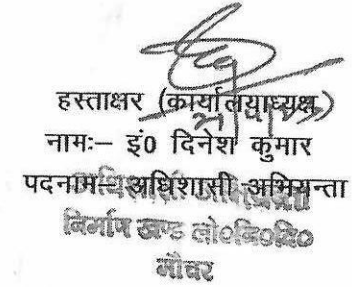 हस्ताक्षर (कार्यालयाध्यक्ष)
नामः– इं0 दिनेश कुमार
पदनाम– अधिशासी अभियन्ता
अधिशासी अभियन्ता
निर्माण खण्ड लो०नि०वि०
गौचर